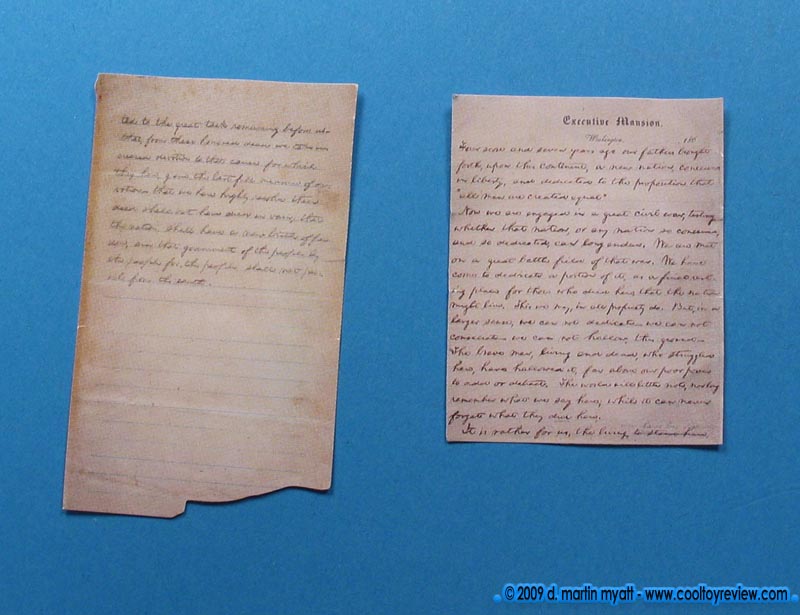 ted to the great task remaining before us—
that, from these honored dead we take in-
creased devotion to that cause for which
they here, gave the last full measure of de-
votion— that we here highly resolve these
dead shall not have died in vain; that
the nation, shall have a new birth of free-
dom, and that government of the people by
the people for the people, shall not per-
ish from the earth.
Executive Mansion,
Washington, , 186
Four score and seven years ago our fathers brought
forth, upon this continent, a new nation, conceived
in liberty, and dedicated to the proposition that
"all men are created equal"
Now we are engaged in a great civil war, testing
whether that nation, or any nation so conceived,
and so dedicated, can long endure. We are met
on a great battle field of that war. We have
come to dedicate a portion of it, as a final rest-
ing place for those who died here, that the nation
might live. This we may, in all propriety do. But, in a
larger sense, we can not dedicate— we can not
consecrate— we can not hallow, this ground—
The brave men, living and dead, who struggled
here, have hallowed it, far above our poor power
to add or detract. The world will little note, nor long
remember what we say here; while it can never
forget what they did here.
It is rather for us, the living, to stand here,
© 2009 d. martin myatt - www.cooltoyreview.com